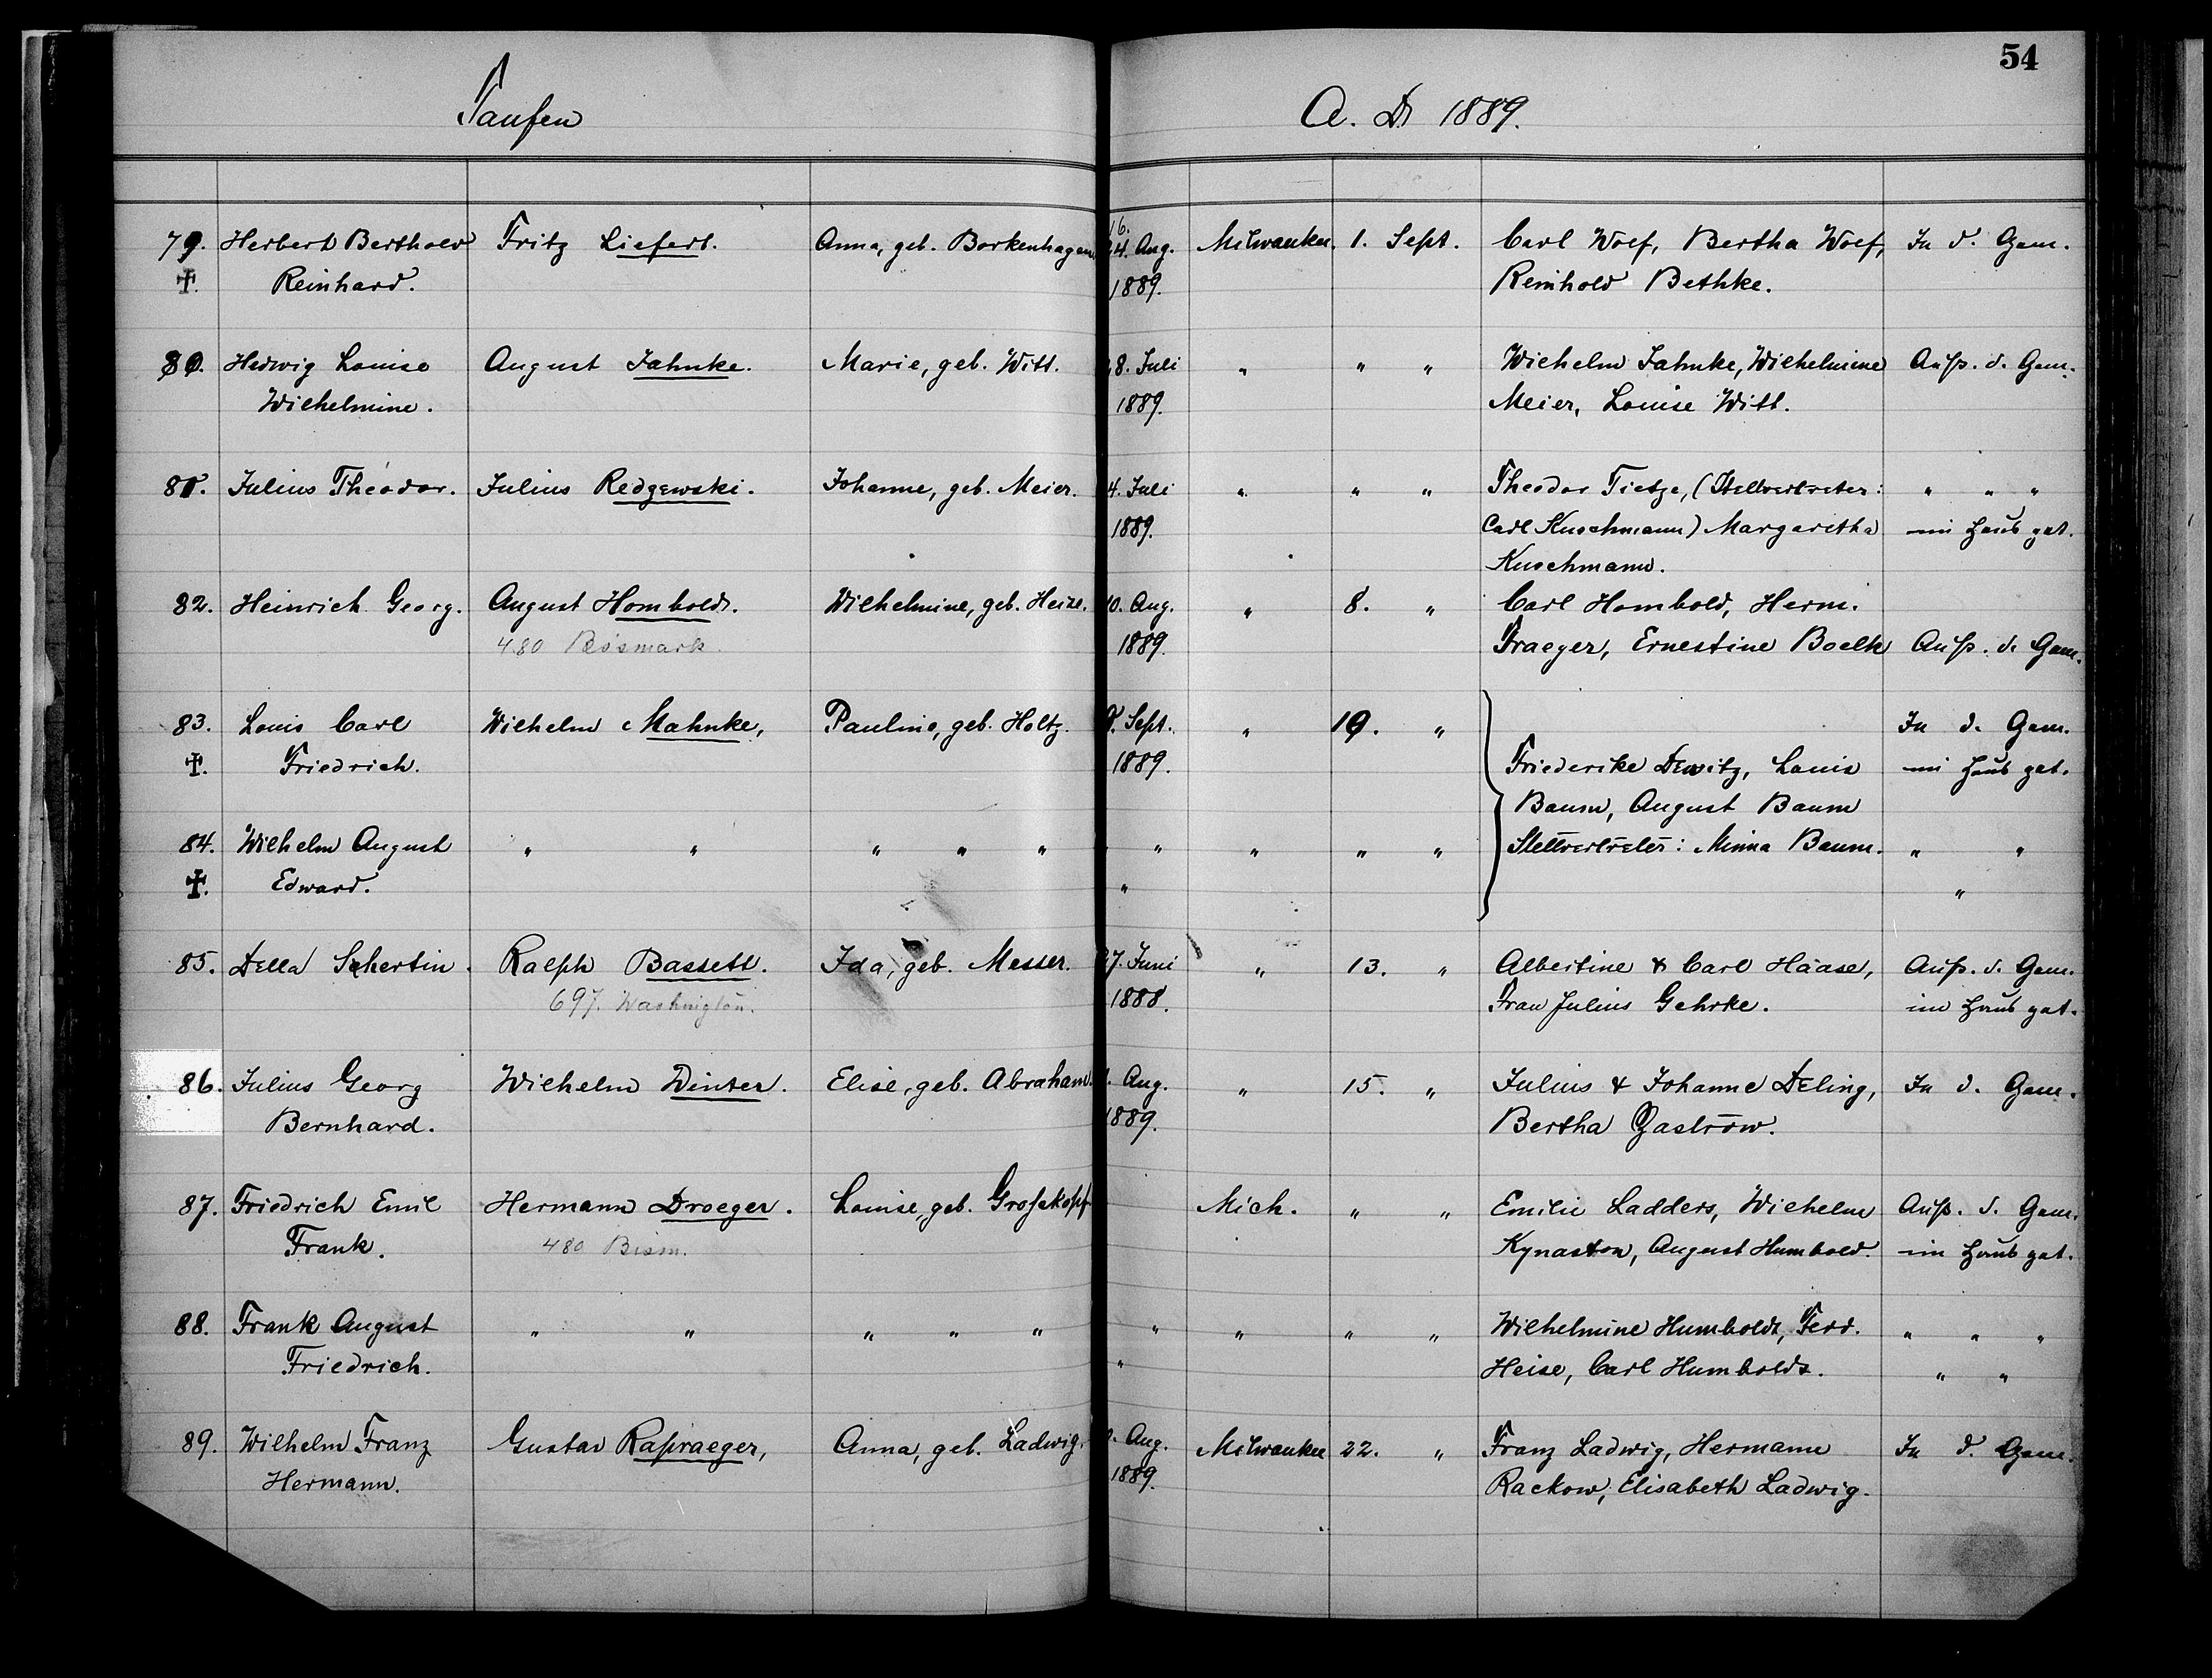 54
Taufen A. D. 1889.
79. Herbert Berthold Fritz Liefert. Anna, geb. Borkenhagen. 16. 24. Aug. Milwaukee. 1. Sept. Carl Wolf, Bertha Wolf, In d. Gem.
✝. Reinhard. 1889. Reinhold Bethke.
80. Hedwig Louise August Jahnke. Marie, geb. Witt. 8. Juli " " " Wilhelm Jahnke, Wilhelmine Auß. d. Gem.
Wilhelmine. 1889. Meier, Louise Witt.
81. Julius Theodor. Julius Redzewski. Johanne, geb. Meier. 4. Juli " " " Theodor Tietze, (Stellvertreter: " " "
1889. Carl Kuschmann) Margaretha im Haus get.
Kuschmann.
82. Heinrich Georg. August Hombold. Wilhelmine, geb. Heise. 10. Aug. " 8. " Carl Hombold, Herm.
480 Bismark. 1889. Traeger, Ernestine Boelk Auß. d. Gem.
83. Louis Carl Wilhelm Mahnke, Pauline, geb. Holtz. Sept. " 10. " In d. Gem.
✝. Friedrich. 1889. Friederike Dewitz, Louis im Haus get.
Baum, August Baum
84. Wilhelm August " " " " " " " " " Stellvertreter: Minna Baum. " "
✝. Edward. " "
85. Della Schertin. Ralph Bassett. Ida, geb. Messer. 27. Juni " 13. " Albertine & Carl Haase, Auß. d. Gem.
697. Washington. 1888. Frau Julius Gehrke. im Haus get.
86. Julius Georg Wilhelm Dinter. Elise, geb. Abraham. Aug. " 15. " Julius & Johanne Deling, In d. Gem.
Bernhard. 1889. Bertha Zastrow.
87. Friedrich Emil Hermann Droeger. Louise, geb. Großkopf Mich. " " Emilie Ladders, Wilhelm Auß. d. Gem.
Frank. 480 Bism. Kynaston, August Humbold. im Haus get.
88. Frank August " " " " " " " " " Wilhelmine Humboldt, Ferd. " " "
Friedrich. " Heise, Carl Humboldt. " "
89. Wilhelm Franz Gustav Rapraeger, Anna, geb. Ladwig. Aug. Milwaukee 22. " Franz Ladwig, Hermann In d. Gem.
Hermann. 1889. Rackow, Elisabeth Ladwig.